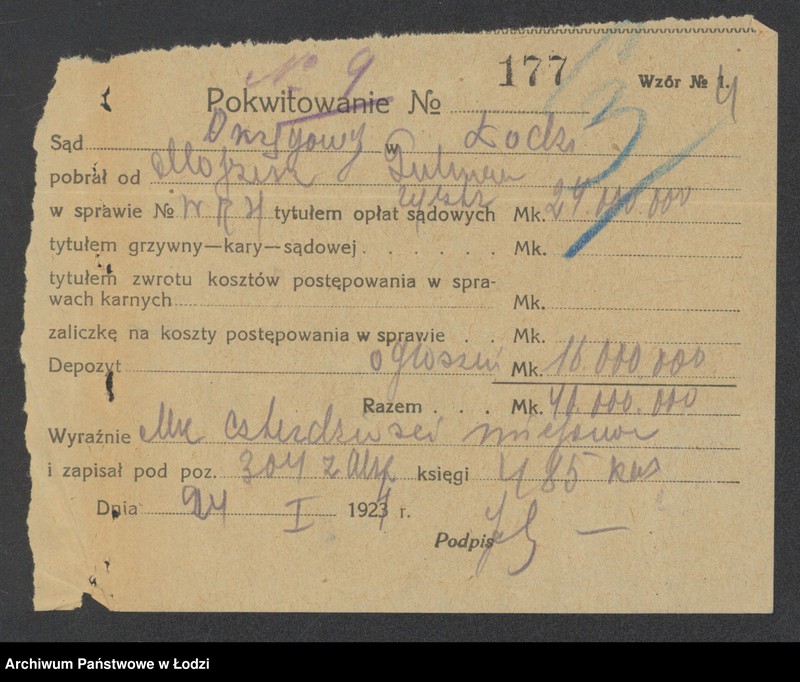 № 9
177
Wzór № 1.
4
Pokwitowanie №
Sąd Okręgowy w Łodzi
pobrał od
w sprawie № tytułem opłat sądowych Mk. 24.000.000
tytułem grzywny—kary—sądowej . . . . . . Mk.
tytułem zwrotu kosztów postępowania w spra-
wach karnych Mk.
zaliczkę na koszty postępowania w sprawie . . Mk.
Depozyt ogłoszeń Mk. 16.000.000
Razem . . . Mk. 40.000.000
Wyraźnie Mk czterdzieści miljonów
i zapisał pod poz. 304 księgi 485 kas
Dnia 24 I 1924 r.
Podpis
Archiwum Państwowe w Łodzi